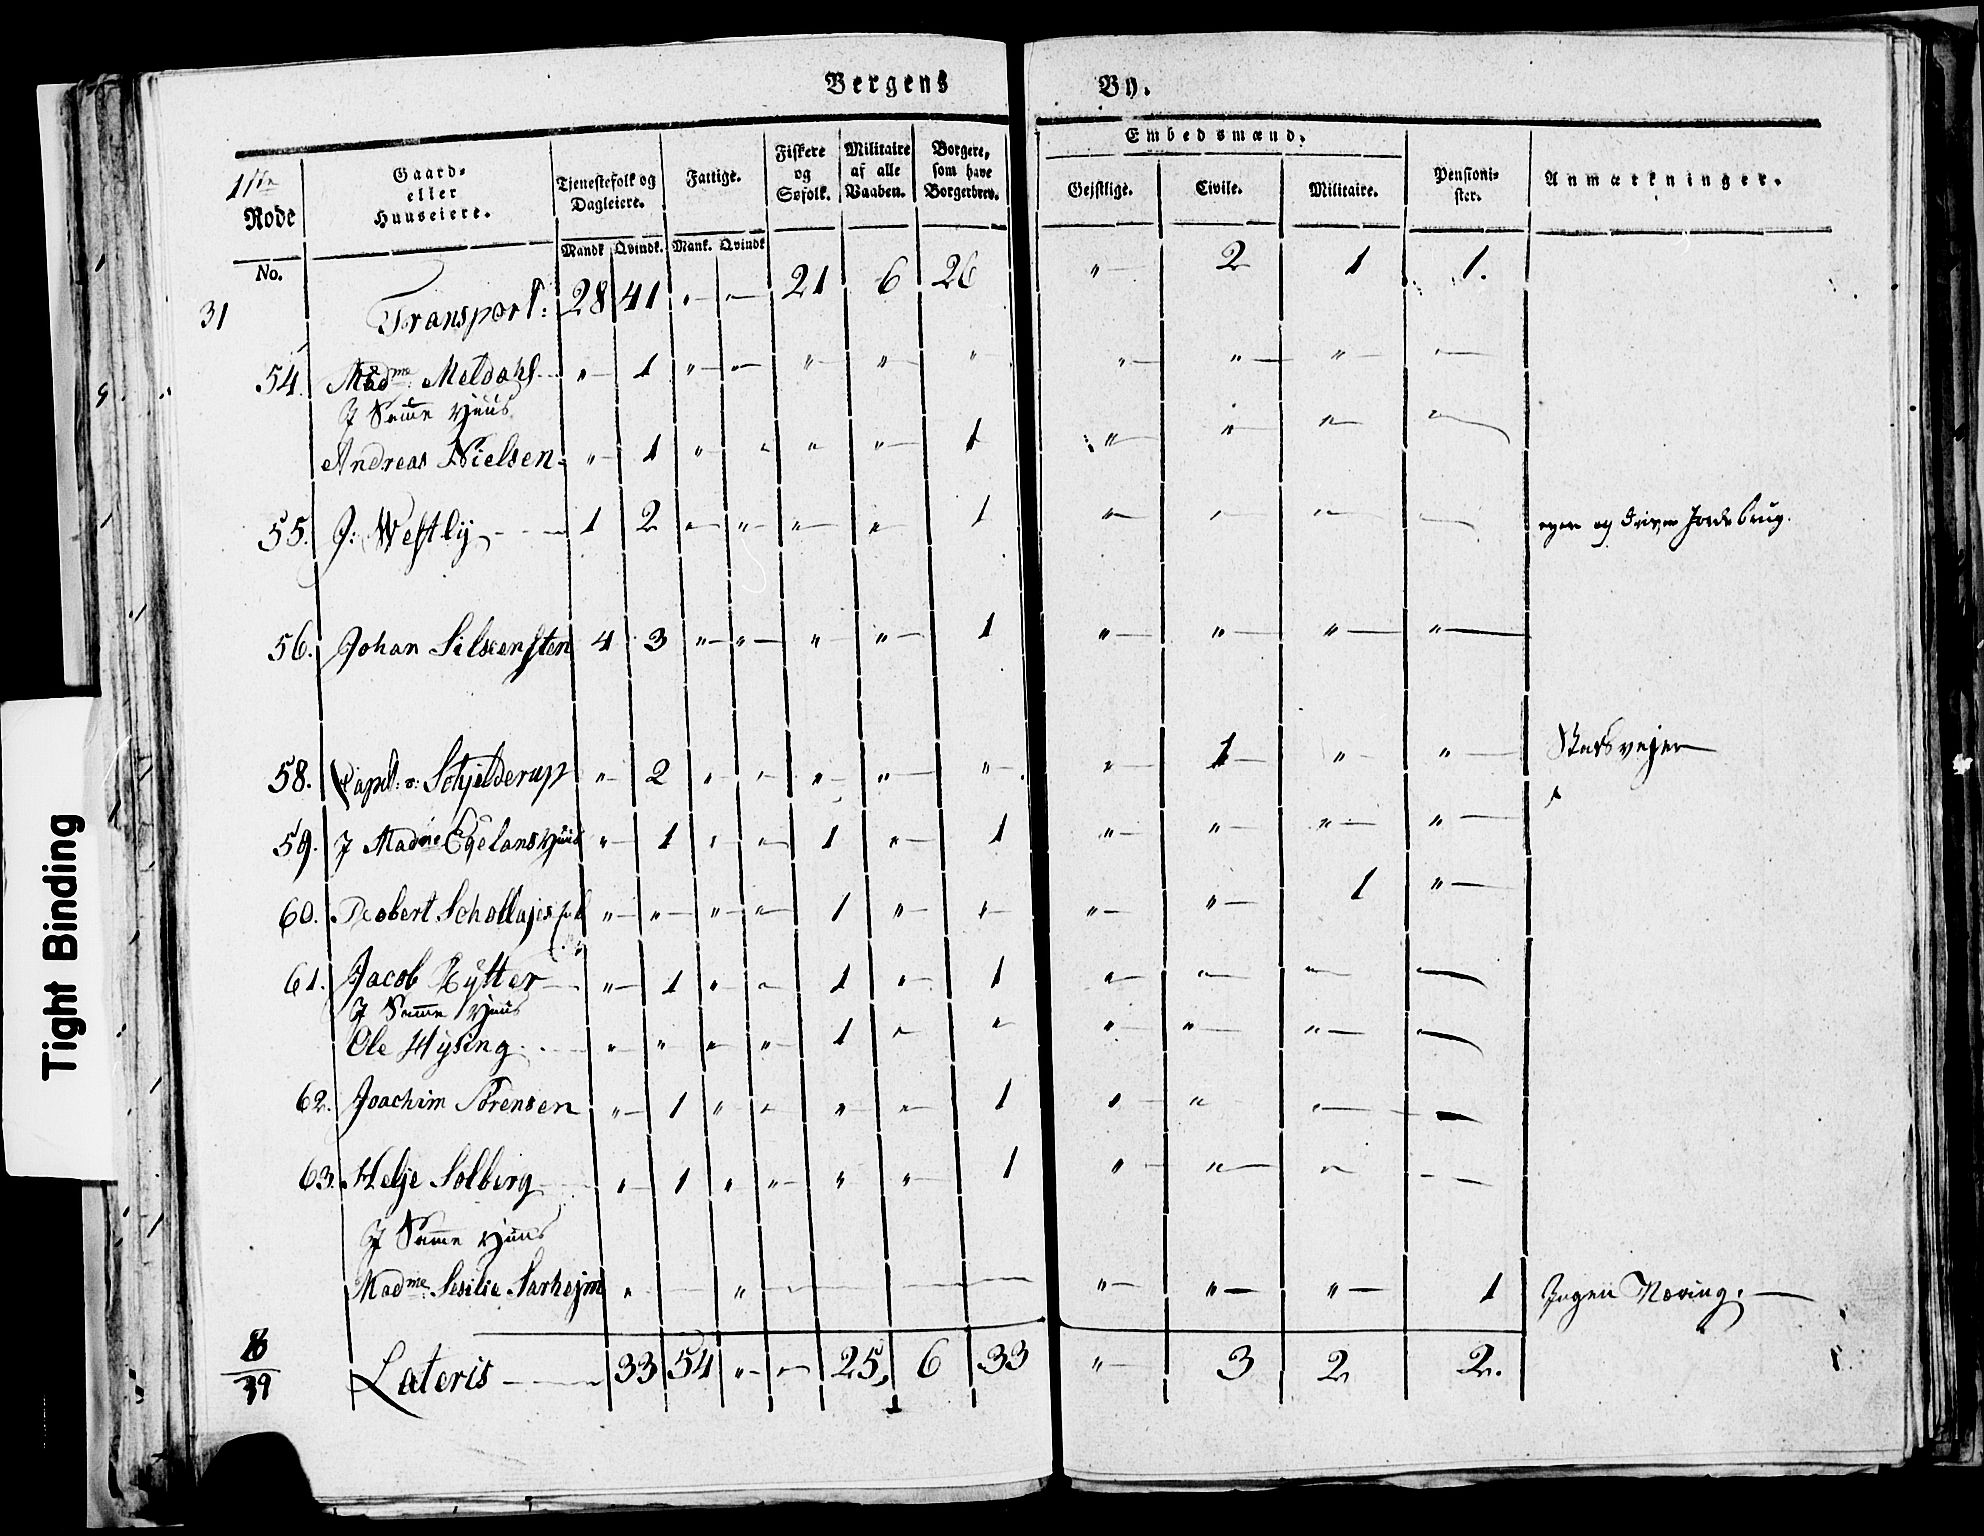 Bergens By.
11te Rode No. | Gaard- eller Huuseiere. | Tjenestefolk og Dagleiere. Mandk. Qvindk. | Fattige. Mank. Qvindk | Fiskere og Søfolk. | Militaire af alle Vaaben. | Borgere, som have Borgerbrev. | Embedsmænd. Gejstlige. Civile. Militaire. | Pensionister. | Anmærkninger.
31 Transport: 28 41 " — " — 21 6 26 " — 2 1 1.
54. Madme Meldahl " — 1 " — " — " — " — " " — " — " — " —
I Samme Huus
Andreas Nielsen " — 1 " " " " — 1 " — " — " — " —
55. J: Westlÿ 1 2 " — " — " — " — 1 " — " — " — " — eyer og driver Jordebrug.
56. Johan 4 3 " — " — " " — 1 " — " — " — " —
58. Capt: v: Schjelderup " — 2 " " " — " — " " — 1 " — " — Stadsvejer
59. I Madme Egelans Huus " — 1 " " — 1 " — 1 " — " — " — " —
60. Robert " — " — " — " — 1 " — " — " — " — 1 " —
61. Jacob Rÿtter " — 1 " — " — 1 " — 1 " — " — " — " —
I Samme Huus
Ole Hÿsing " — " " — " — 1 " " — " — " — " — " —
62. Joachim Sørensen " — 1 " — " — " — " — 1 " — " — " — " —
63. Helje Solberg " — 1 " " — " " — 1 " — " — " — " —
I Samme Huus
Madme Sesilie Sarhejm " — " — — — " — " — " — 1 Ingen Næring. —
Lateris 33 54 " — " — 25, 6 33 " — 3 2 2.
Tight Binding